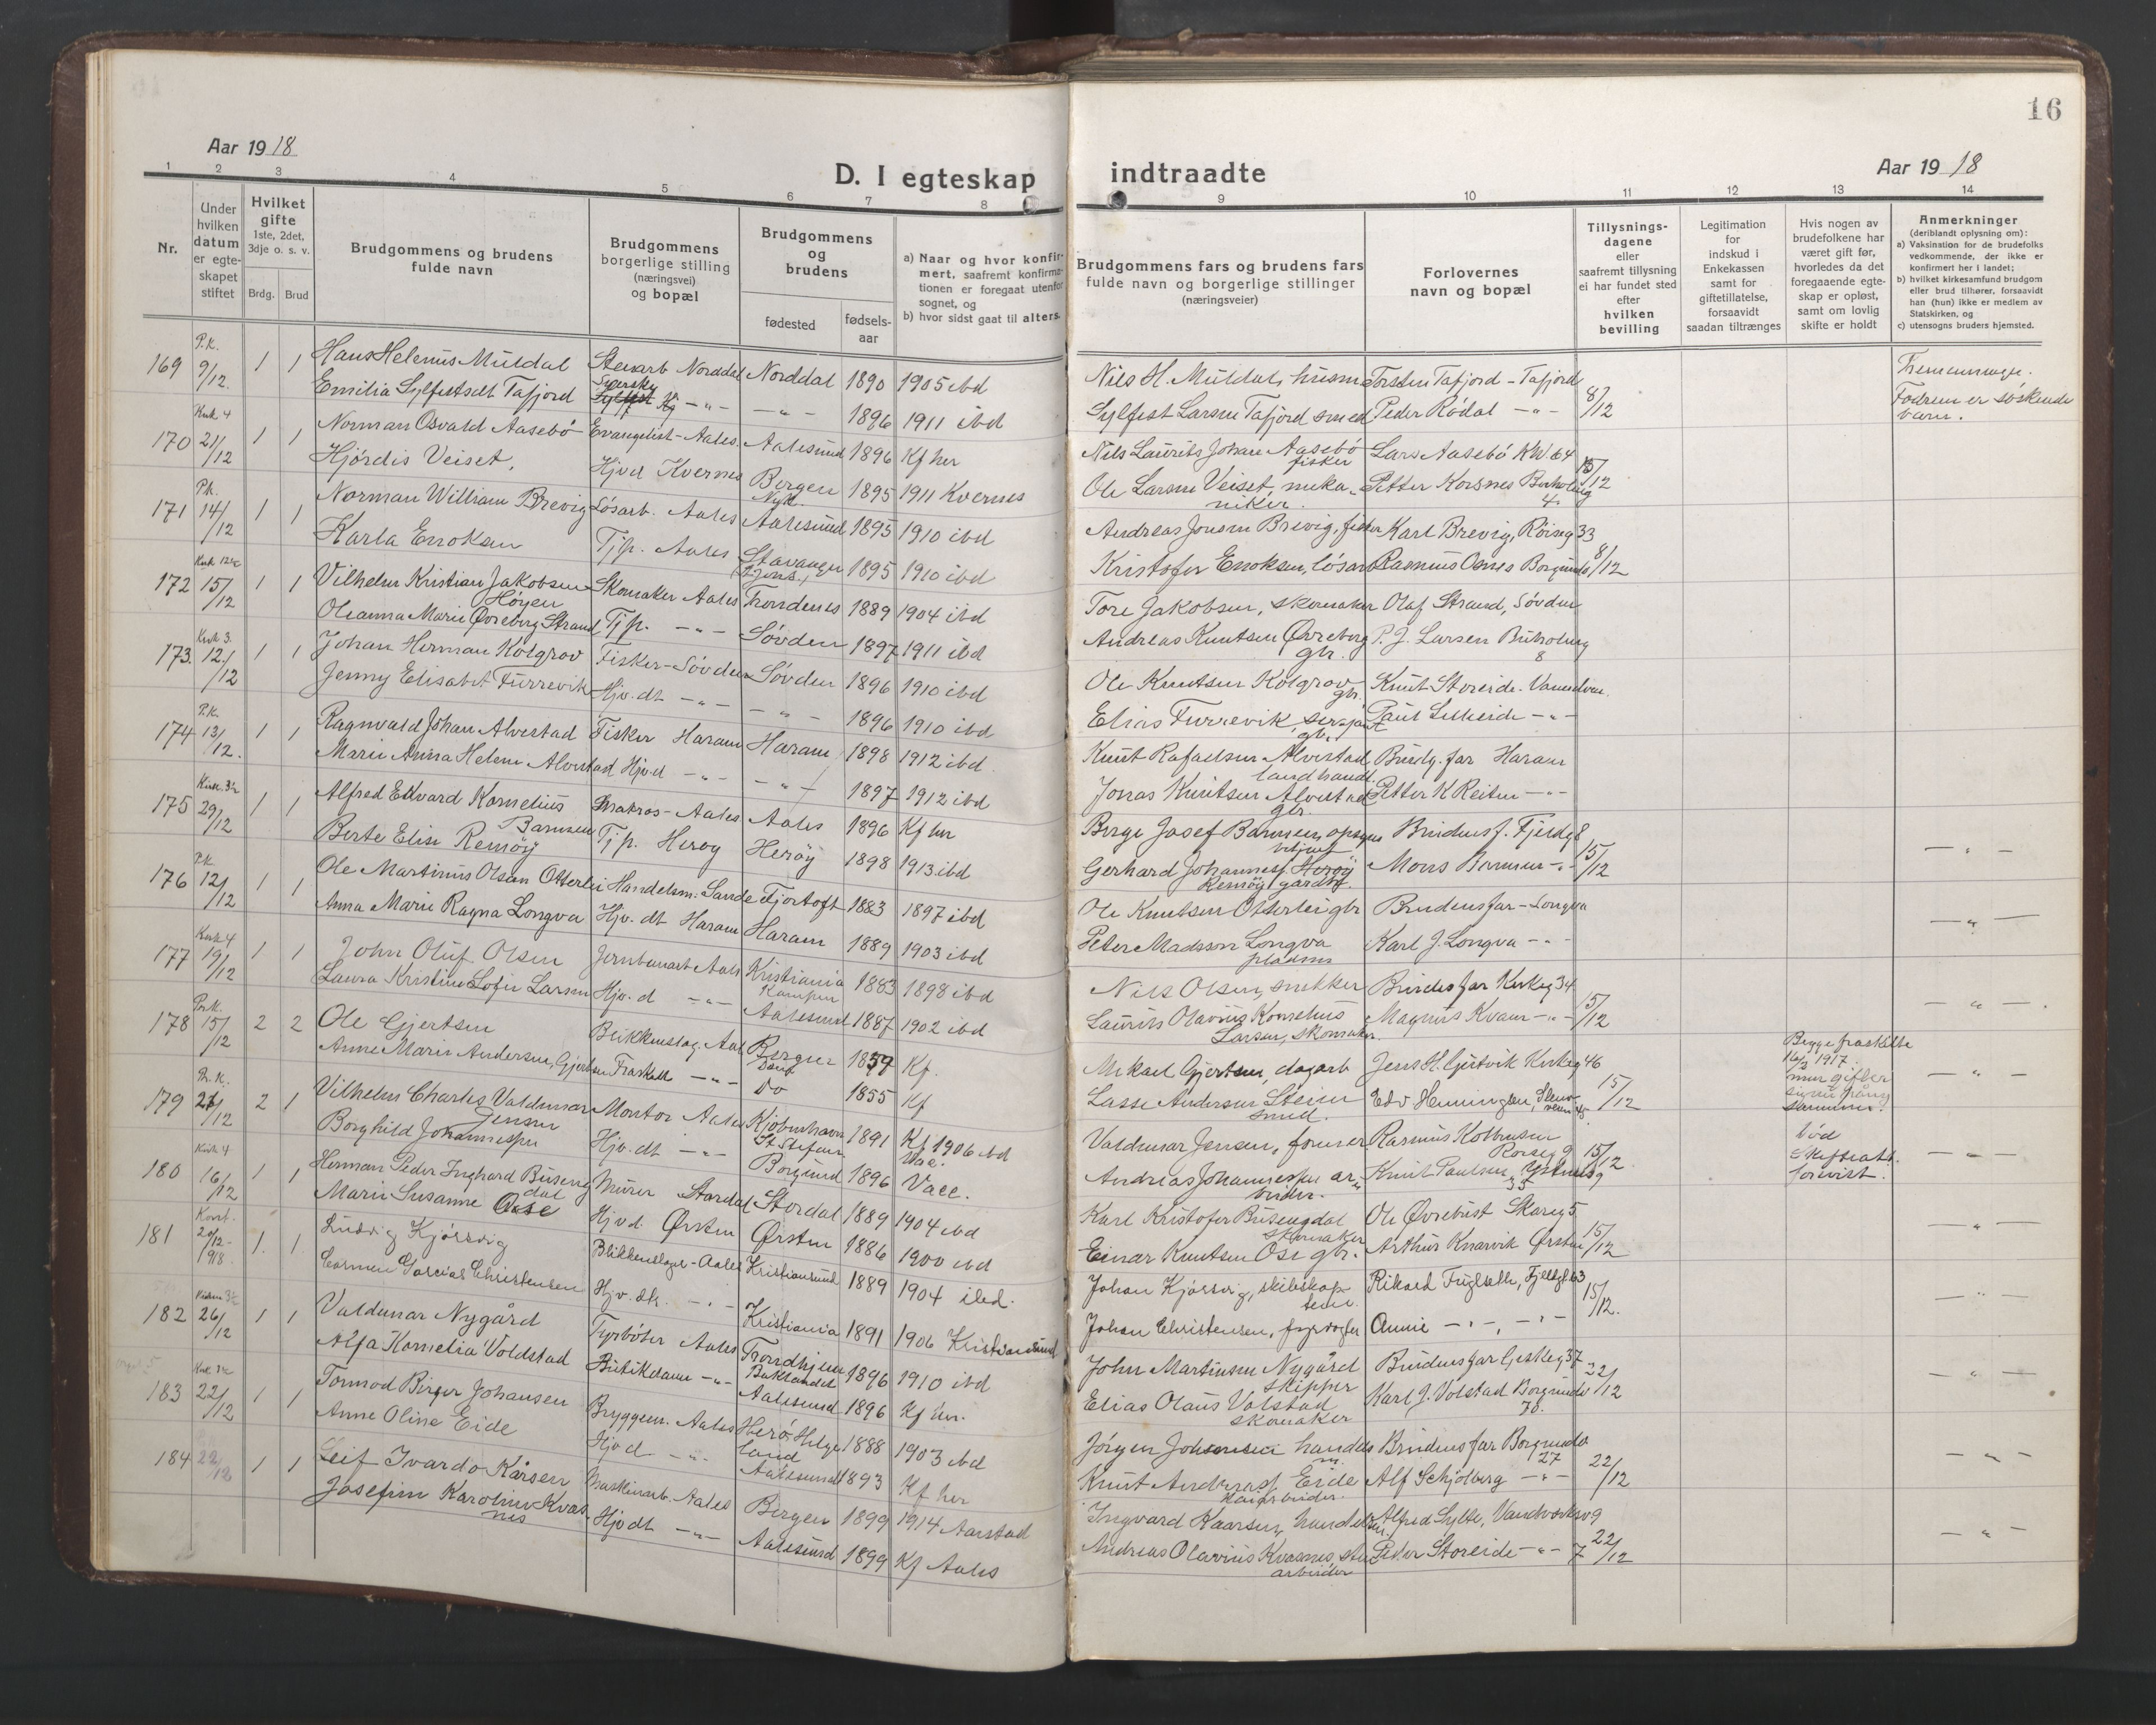 16
Aar 1918
D. I egteskap indtraadte
Aar 1918
1 2 3 4 5 6 7 8
9 10 11 12 13 14
Nr.
Under hvilken datum er egteskapet stiftet
Hvilket gifte 1ste, 2det, 3dje o. s. v.
Brdg. Brud
Brudgommens og brudens fulde navn
Brudgommens borgerlige stilling (næringsvei) og bopæl
Brudgommens og brudens
fødested
fødselsaar
a) Naar og hvor konfirmert, saafremt konfirmationen er foregaat utenfor sognet, og
b) hvor sidst gaat til alters.
Brudgommens fars og brudens fars fulde navn og borgerlige stillinger (næringsveier)
Forlovernes navn og bopæl
Tillysningsdagene eller saafremt tillysning ei har fundet sted efter hvilken bevilling
Legitimation for indskud i Enkekassen samt for giftetillatelse, forsaavidt saadan tiltrænges
Hvis nogen av brudefolkene har været gift før, hvorledes da det foregaaende egteskap er opløst, samt om lovlig skifte er holdt
Anmerkninger
(deriblandt oplysning om):
a) Vaksination for de brudefolks vedkommende, der ikke er konfirmert her i landet;
b) hvilket kirkesamfund brudgom eller brud tilhører, forsaavidt han (hun) ikke er medlem av Statskirken, og
c) utensogns bruders hjemsted.
169 P.k. 9/12 1 1 Hans Helenus Muldal Stenarb Norddal Norddal 1890 1905 ibd
Nils H. Muldal, husm Torsten Tafjord - Tafjord 8/12
Emilia Sylfestsdt Tafjord -"- -"- 1896 1911 ibd
Sylfest Larsen Tafjord smed Peder Rødal -"- Fædrene er søskende barn.
170 Kirk 4 21/12 1 1 Norman Osvald Aasebø Evangelist - Aales. Aalesund 1896 Kf her
Nils Laurits Johan Aasebø fisker Lars Aasebø KW 64 15/12
Hjørdis Veiset, Hjvd Kvernes Bergen Nyk. 1895 1911 Kvernes
Ole Larsen Veiset, mekaniker. Petter Korsnes Buholmg 4.
171 P.k. 14/12 1 1 Norman William Brevig Løsarb. Aales Aalesund 1895 1910 ibd
Andreas Jonsen Brevig, fisker Karl Brevig, Røiseg 33
Karla Enoksen Tjp. Aales Stavanger 1895 1910 ibd
Kristofer Enoksen, løsarb Rasmus Osnes Borgundv 8/12
172 15/12 1 1 Vilhelm Kristian Jakobsen Høyen Skomaker Aales Trondenes 1889 1904 ibd
Tore Jakobsen, skomaker Olaf Strand, Søvden
Oleanna Marie Øvreberg Strand Tjp. -"- Søvden 1897 1911 ibd
Andreas Knutsen Øvreberg gbr. P. J. Larsen Buholmg 8
173. Kirk 3. 12/12 1 1 Johan Herman Kolgrov Fisker - Søvden Søvden 1896 1910 ibd
Ole Knutsen Kolgrov gbr. Knut Storeide - Vanelven.
Jenny Elisabet Furrevik Hjv. dt -"- -"- 1896 1910 ibd
Elias Furrevik, sersjant gbr. Paul Lilleeide -"-
174 P.k. 13/12. 1 1 Ragnvald Johan Alvestad Fisker Haram Haram 1898 1912 ibd.
Knut Rafaelsen Alvestad landhandl. Brudg. far Haram
Marie Anna Helene Alvestad Hjvd -"- -"- 1897 1912 ibd
Jonas Knutsen Alvestad gbr. Petter K Reiten -"-
175 29/12 1 1 Alfred Edvard Kornelius Barmen Matros - Aales Aales 1896 Kf her
Berge Josef Barmen, opsyns betjent Brudens f. Fjeldg 8
Berte Elise Remøy Tjp. Herøy Herøy 1898 1913 ibd
Gerhard Johannes. Herøy Remøy gardbr. Mons Barmen -"- 15/12 -"-
176 P.k 12/12 1 1 Ole Martinus Olsen Otterlei Handelsm. Sande Fjørtoft 1883 1897 ibd
Ole Knutsen Otterlei gbr Brudens far - Longva
Anna Marie Ragna Longva Hjv. dt Haram Haram 1889 1903 ibd
Peter Madsson Longva pladsm Karl J. Longva -"- -"-
177 Kirk 4 19/12 1 1 John Oluf Olsen Jernbanearb Aales Kristiania Kampen 1883 1898 ibd
Nils Olsen, snekker Brudes far Kirkeg 34
Laura Kristine Sofie Larsen Hjv. d -"- Aalesund 1887 1902 ibd
Laurits Olavus Kornelius Larsen, skomaker. Magnus Kvam -"- 15/12 -"-
178 P.k. 15/12 2 2 Ole Gjertsen Blikkenslag. Aal Bergen 1859 Kf.
Mikael Gjertsen, dagarb Jens H. Gjertvik Kirkeg 46 Begge fraskilte 16/3 1917.
Anne Marie Andersen, Gjertsen Fraskilt -"- Do 1855 Kf
Lasse Andersen Steim smed. Edv Henningsen, Stenvveien 45 15/12 samme. -"-
179 P.k. 1/12 2 1 Vilhelm Charles Valdemar Jensen Montør Aales Kjøbenhavn St. Stefans 1891 Kf 1906 ibd Vac.
Valdemar Jensen, former Rasmus Kolbensen Roiseg 9 15/12 død
Borghild Johannesen Hjv. dt -"- Borgund 1896 Vacc.
Andreas Johannessen arbeider. Knut Paulsen, 35 skifteatt. forevist. -"-
180 Kirk 4 16/12 1 1 Herman Peder Inghard Busengdal Murer Stordal Stordal 1889 1904 ibd
Karl Kristofer Busengdal skomaker Ole Øvrebust Skareg 5
Marie Susanne Ose Hjvd. Ørsten Ørsten 1886 1900 ibd
Einar Knutsen Ose gbr. Arthur Knarvik Ørsten 15/12 -"-
181 1 1 Ludvig Kjørsvig Blikkenslager - Aales Kristiansund 1889 1904 ibd.
Johan Kjørsvig, skibskaptein. Rikard Fuglseth, Fjeldgt 63
Carmen Garcias Christensen Hjv. dtr. -"- Kristiania 1891 1906 Kristiansund
Johan Christensen, fyrvogter Annie -"- -"- 15/12. -"-
182 26/12 1 1 Valdemar Nygård Fyrbøter Aales Trondhjem Baklandet 1896 1910 ibd
John Martinsen Nygård skipper Brudens far Giskeg 37 22/12
Alfa Kornelia Voldstad Butikdame -"- Aalesund 1896 Kf her.
Elias Olaus Volstad skomaker Karl J. Volstad Borgundv 70. -"-
183 22/12 1 1 Tormod Birger Johansen Bryggem. Aales Herø Helgeland 1888 1903 ibd
Jørgen Johansen handelsm. Brudens far Borgundv 27
Anne Oline Eide Hjvd -"- Aalesund 1893 Kf her
Knut Andreas. Eide Alf Schjølberg -"- 22/12 -"-
184 22/12 1 1 Leif Ivardo Kårsen Maskinarb. Aales Bergen 1899 1914 Aarstad
Ingvard Kaarsen, handelsm. Alfred Sylte, Vandverksv 9
Josefine Karoline Kvasnes Hjv dt -"- Aalesund 1899 Kf Aales
Andreas Olavius Kvasnes, arbeider Peder Storeide -"- 7 22/12 -"-